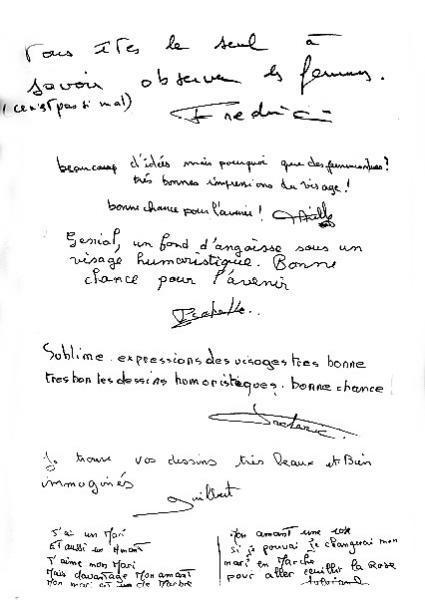 Vous êtes le seul à
savoir observer les femmes.
(ce n'est pas si mal)
Frédéric
beaucoup d'idées mais pourquoi que des femmes nues?
très bonnes impressions du visage!
bonne chance pour l'avenir!
Génial, un fond d'angoisse sous un
visage humoristique. Bonne
chance pour l'avenir
Isabelle..
Sublime. expressions des visages tres bonne
tres bon les dessins homoristèques. bonne chance!
Je trouve vos dessins très beaux et Bien
immaginés
Guilbert
J'ai un Mari
Et aussi un Amant
J'aime mon Mari
Mais davantage Mon amant
Mon mari est de Marbre
Mon amant une rose
Si je pouvai je changerai mon
mari en Marche
pour aller cueillir la Rose